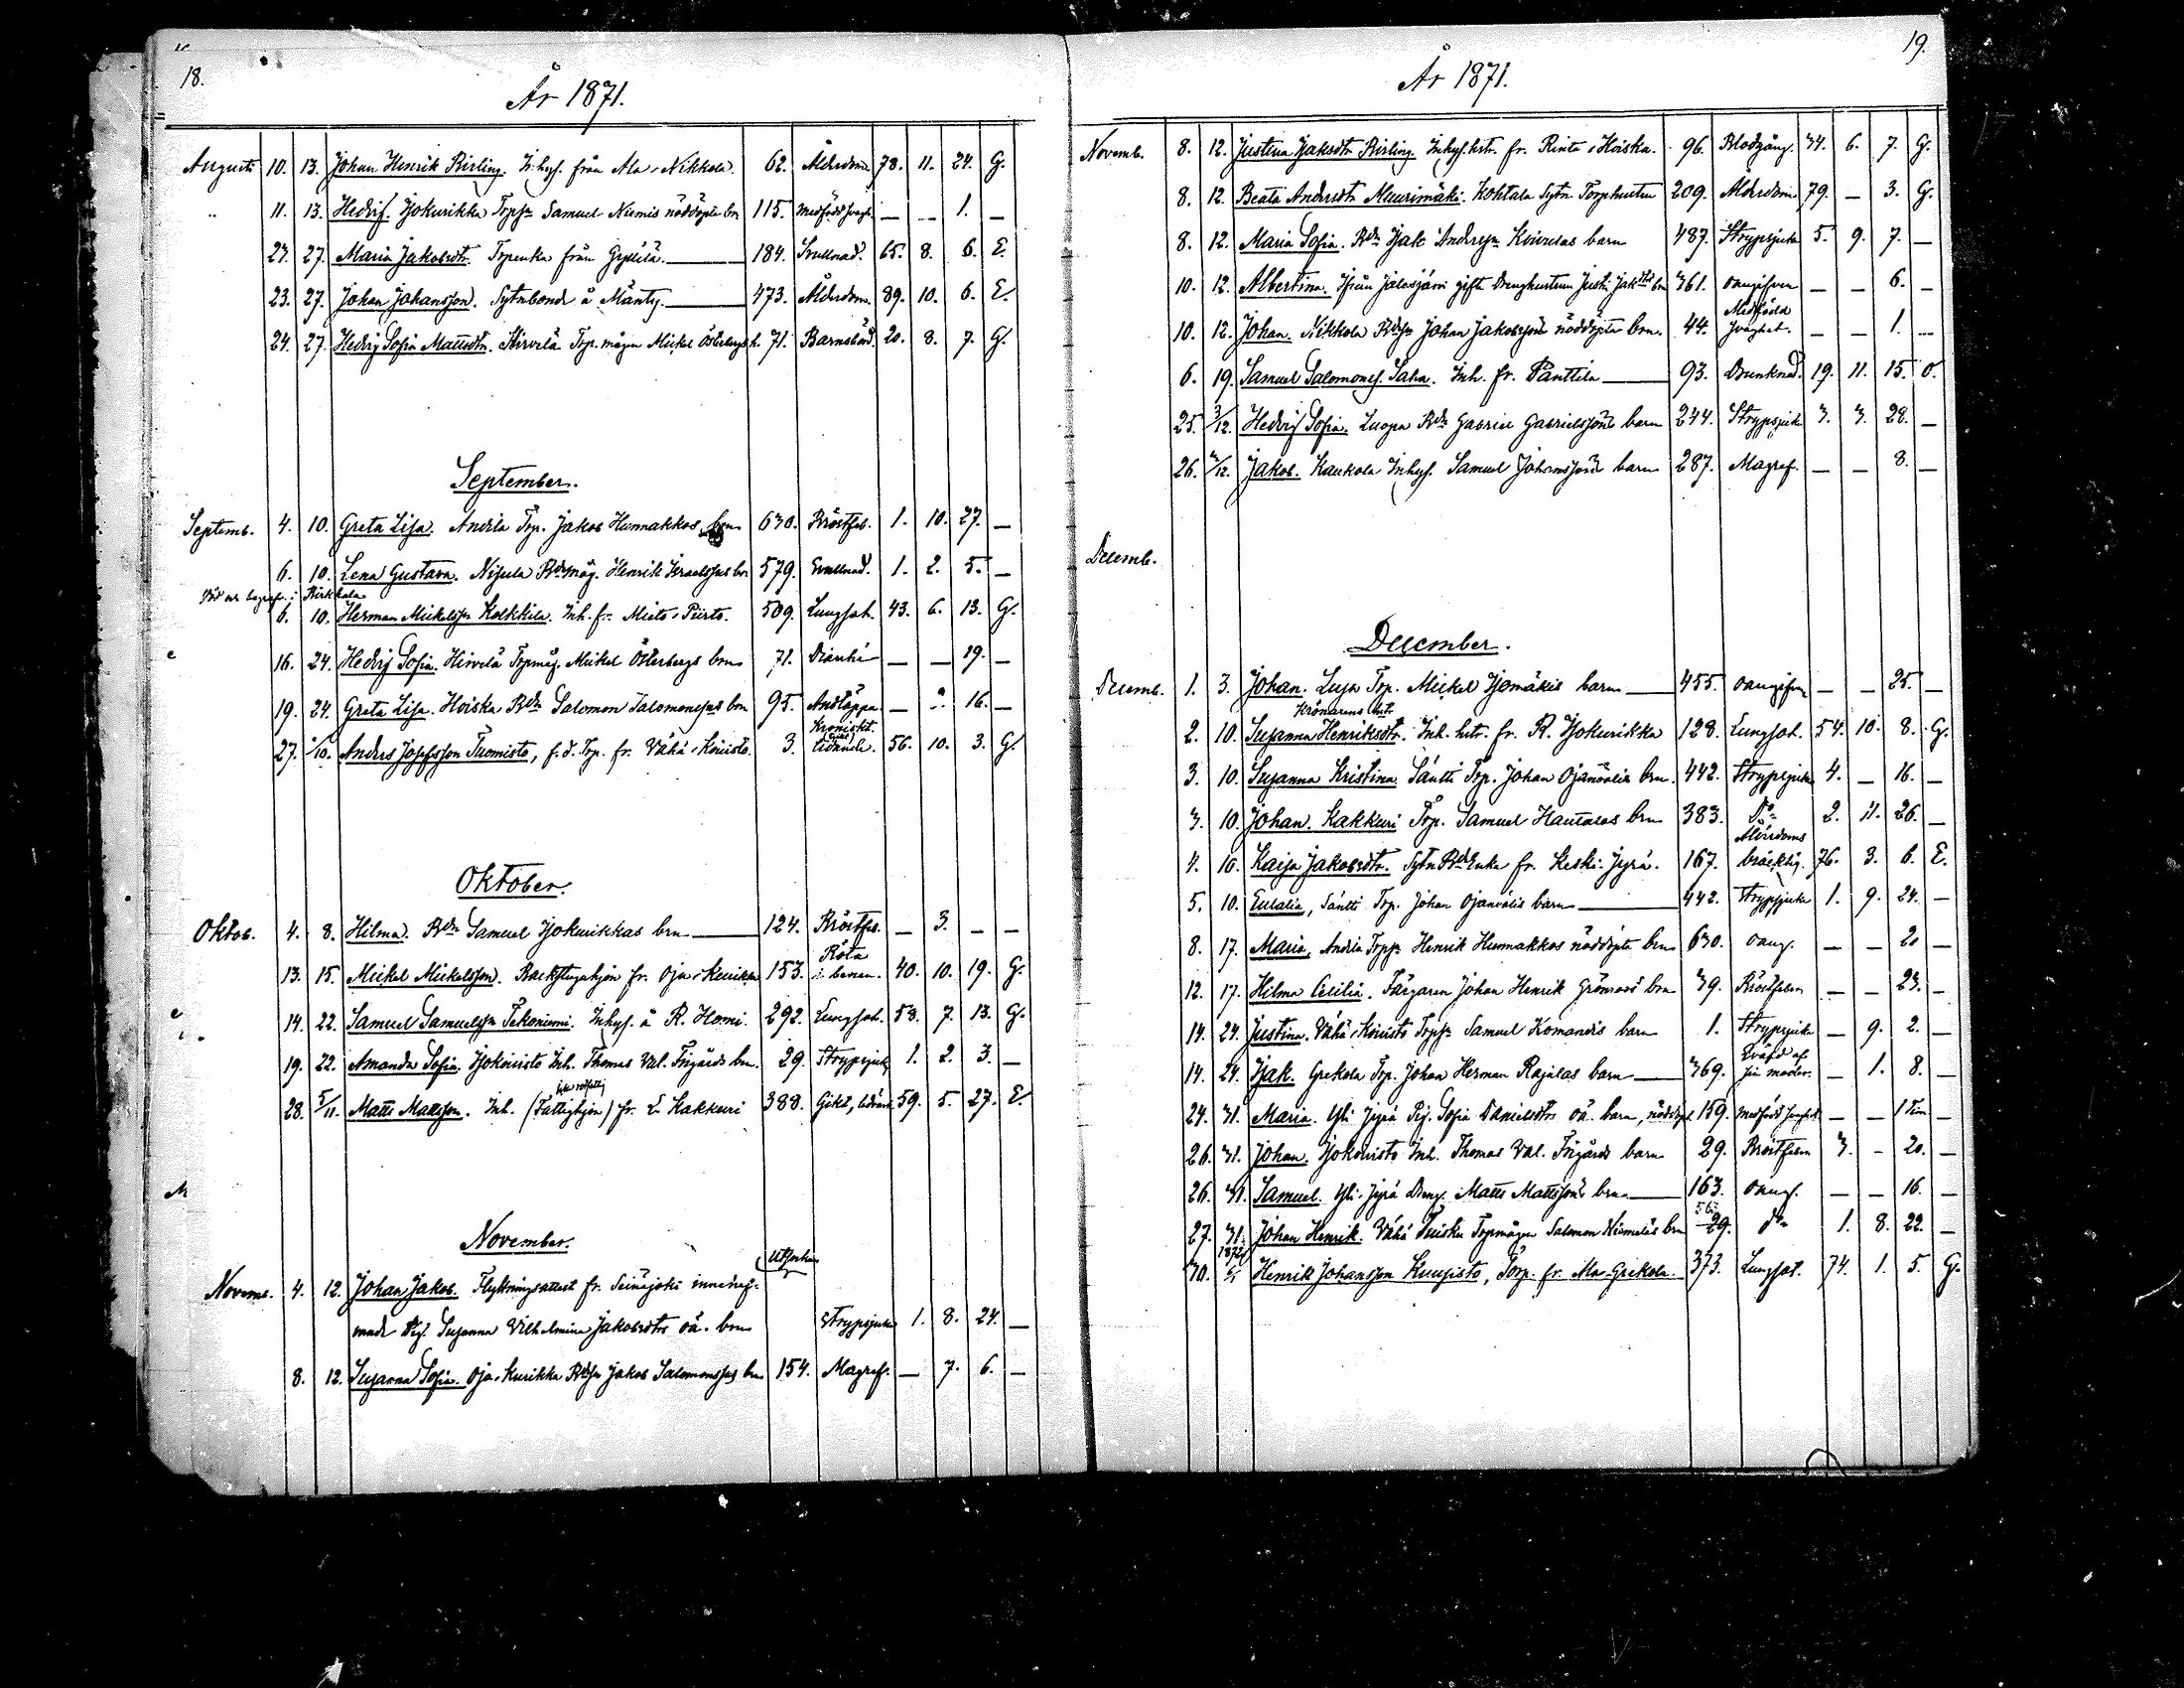 18.
År 1871.
Augusti 10. 13. Johan Henrik Kirling. Inhys. från Ala-Nikkola. 62. Ålderdom. 78. 11. 24. G.
„ 11. 13. Hedvig. Jjokurikka Trpsn Samuel Niemis nöddöpta brn 115. medfödd svagh. — — 1. —
23. 27. Maria Jakobsdtr. Trpenka från 184. Svullnad. 65. 8. 6. E.
23. 27. Johan Johansson. Sytnbonde å Mänty. 473. Ålderdom. 89. 10. 6. E.
24. 27. Hedvig Sofia Mattsdtr. Hirvelä Trp. mågen Mickel Österbergs h. 71. Barnsbörd. 20. 8. 7. G.
September.
Septemb. 4. 10. Greta Lisa. Andila Trp. Jakob Hunnakkos brn 630. Bröstfeb. 1. 10. 27. —
6. 10. Lena Gustava. Nisula Bdemåg. Henrik Israelssons brn 579. Svullnad. 1. 2. 5. —
6. 10. Herman Mickelsson Kolkkila. Inh. fr. Mieto-Piirto. 509. Lungsot. 43. 6. 13. G.
16. 24. Hedvig Sofia. Hirvelä Trpmåg. Mickel Österbergs brn 71. Diarrhé — — 19. —
19. 24. Greta Lisa. Hoiska Bdn Salomon Salomonssons brn 95. Andtäppa — 16. —
Kroniskt
27. 1/10. Anders Josefsson Tuomisto, f.d. Trp. fr. Vähä-Koivisto. 3. lidande. 56. 10. 3. G.
Oktober.
Oktob. 4. 8. Hilma. Bdn Samuel Jjokurikkas brn 124. Bröstfeb. — 3. — —
Röta
13. 15. Mickel Mickelsson. Backstuguhjon fr. Oja-Kurikka 153. i benen. 40. 10. 19. G.
14. 22. Samuel Samuelsson Tekoniemi. Inhys. å R. Homi. 292. Lungsot. 53. 7. 13. G.
19. 22. Amanda Sofia. Jjokoivisto Inh. Thomas Val. Frigårds brn. 29. Strypsjuka 1. 2. 3. —
28. 5/11. Matts Mattsson. Inh. (Fattighjon) fr. L. Kakkuri 388. Gikt, 59. 5. 27. E.
November.
Novemb. 4. 12. Johan Jakob. Flyttningsattest fr. Seinäjoki innehaf-
vande Pig. Susanna Vilhelmina Jakobsdtrs oä. brn Strypsjuka 1. 8. 24. —
8. 12. Susanna Sofia. Oja-Kurikka Bdsn Jakob Salomonssons brn 154. Magref. — 7. 6. —
19.
År 1871.
Novemb. 8. 12. Justina Jakobsdtr Kirling. Inhys. hstr. fr. Rinta-Hoiska. 96. Blodgång. 34. 6. 7. G.
8. 12. Beata Andersdtr Muurimäki. Kohtala Sytn Torphustru 209. Ålderdom 79. — 3. G.
8. 12. Maria Sofia. Bdn Isak Anderssn Koivulas barn 487. Strypsjuka 5. 9. 7. —
10. 12. Albertina. Ifrån Jalasjärvi gifta Drenghustrun Justi. Jakdtrs brn 361. oangifven — — 6. —
Medfödd
10. 12. Johan. Nikkola Bdsn Johan Jakobssons nöddöpta brn. 44. svaghet. — — 1. —
6. 19. Samuel Salomonss. Saha. Inh. fr. Panttila 93. Drunknad. 19. 11. 15. O.
25. 3/12. Hedvig Sofia. Luopa Bdn Gabriel Gabrielssons barn 244. Strypsjuka 3. 3. 28. —
26. 3/12. Jakob. Kaukola Inhys. Samuel Johanssons barn 287. Magref. — — 8. —
Decemb.
December.
Decemb. 1. 3. Johan. Luopa Trp. Mickel Isomäkis barn 455. oangifven — — 25. —
2. 10. Susanna Henriksdtr. Inh. hstr. fr. R. Jjokurikka 128. Lungsot. 54. 10. 8. G.
3. 10. Susanna Kristina. Säntti Trp. Johan Ojanvälis brn. 442. Strypsjuka 4. — 16. —
3. 10. Johan. Kakkuri Trp. Samuel Hautalas brn 383. Do 2. 11. 26. —
Ålderdoms
4. 10. Kaisa Jakobsdtr. Sytn Bdenka fr. Keski-Jyrä. 167. bräcklig. 76. 3. 6. E.
5. 10. Eulalia, Säntti Trp. Johan Ojanvälis barn 442. Strypsjuka 1. 9. 24. —
8. 17. Maria, Andila Trpsn Henrik Hunnakkos nöddöpta brn 630. oang. — — 20 —
12. 17. Hilma Cecilia. Färgaren Johan Henrik Grönroos brn 39. Bröstfeber — — 23. —
14. 24. Justina. Vähä-Koivisto Trpsn Samuel Komandis barn 1. Strypsjuka — 9. 2. —
Qväfd af
14. 24. Isak. Grekola Trp. Johan Herman Rajalas barn 369. sin moder. — 1. 8. —
24. 31. Maria. Yli-Jyrä Pig. Sofia Danielsdtrs oä. barn, nöddöpt 159. medfödd svaghet — — 1 Tim —
26. 31. Johan. Jjokoivisto Inh. Thomas Val. Frigårds barn 29. Bröstfeber 3. — 20. —
26. 31. Samuel. Yli-Jyrä Dreng. Matts Mattssons brn 163. oang. — — 16. —
27. 31. Johan Henrik. Vähä Trpmågen Salomon Niemeläs brn 29. Do 1. 8. 22. —
1872
30. Henrik Johansson Kuusisto, Torp. fr. Ala-Grekola. 373. Lungsot. 74. 1. 5. G.